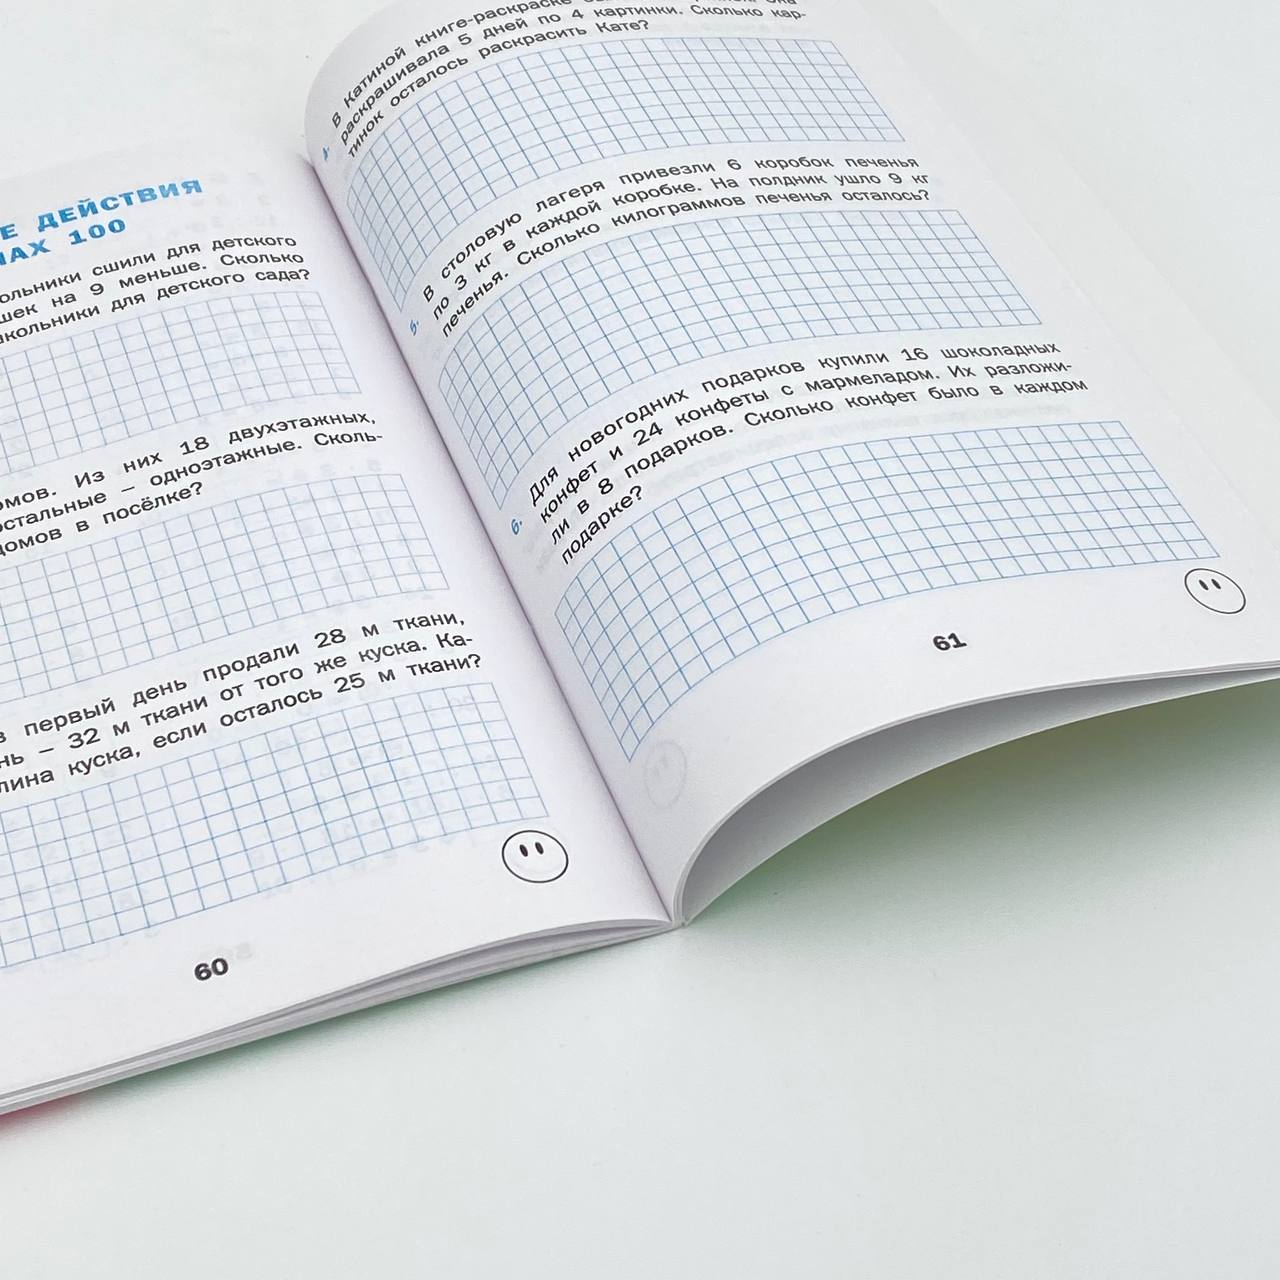 Е ДЕЙСТВИЯ
НАХ 100
ольники сшили для детского
шек на 9 меньше. Сколько
школьники для детского сада?
омов. Из них 18 двухэтажных,
остальные – одноэтажные. Сколь-
домов в посёлке?
в первый день продали 28 м ткани,
нь – 32 м ткани от того же куска. Ка-
лина куска, если осталось 25 м ткани?
60
В Катиной книге-раскраске
раскрашивала 5 дней по 4 картинки. Сколько кар-
тинок осталось раскрасить Кате?
5. В столовую лагеря привезли 6 коробок печенья
по 3 кг в каждой коробке. На полдник ушло 9 кг
печенья. Сколько килограммов печенья осталось?
6. Для новогодних подарков купили 16 шоколадных
конфет и 24 конфеты с мармеладом. Их разложи-
ли в 8 подарков. Сколько конфет было в каждом
подарке?
61